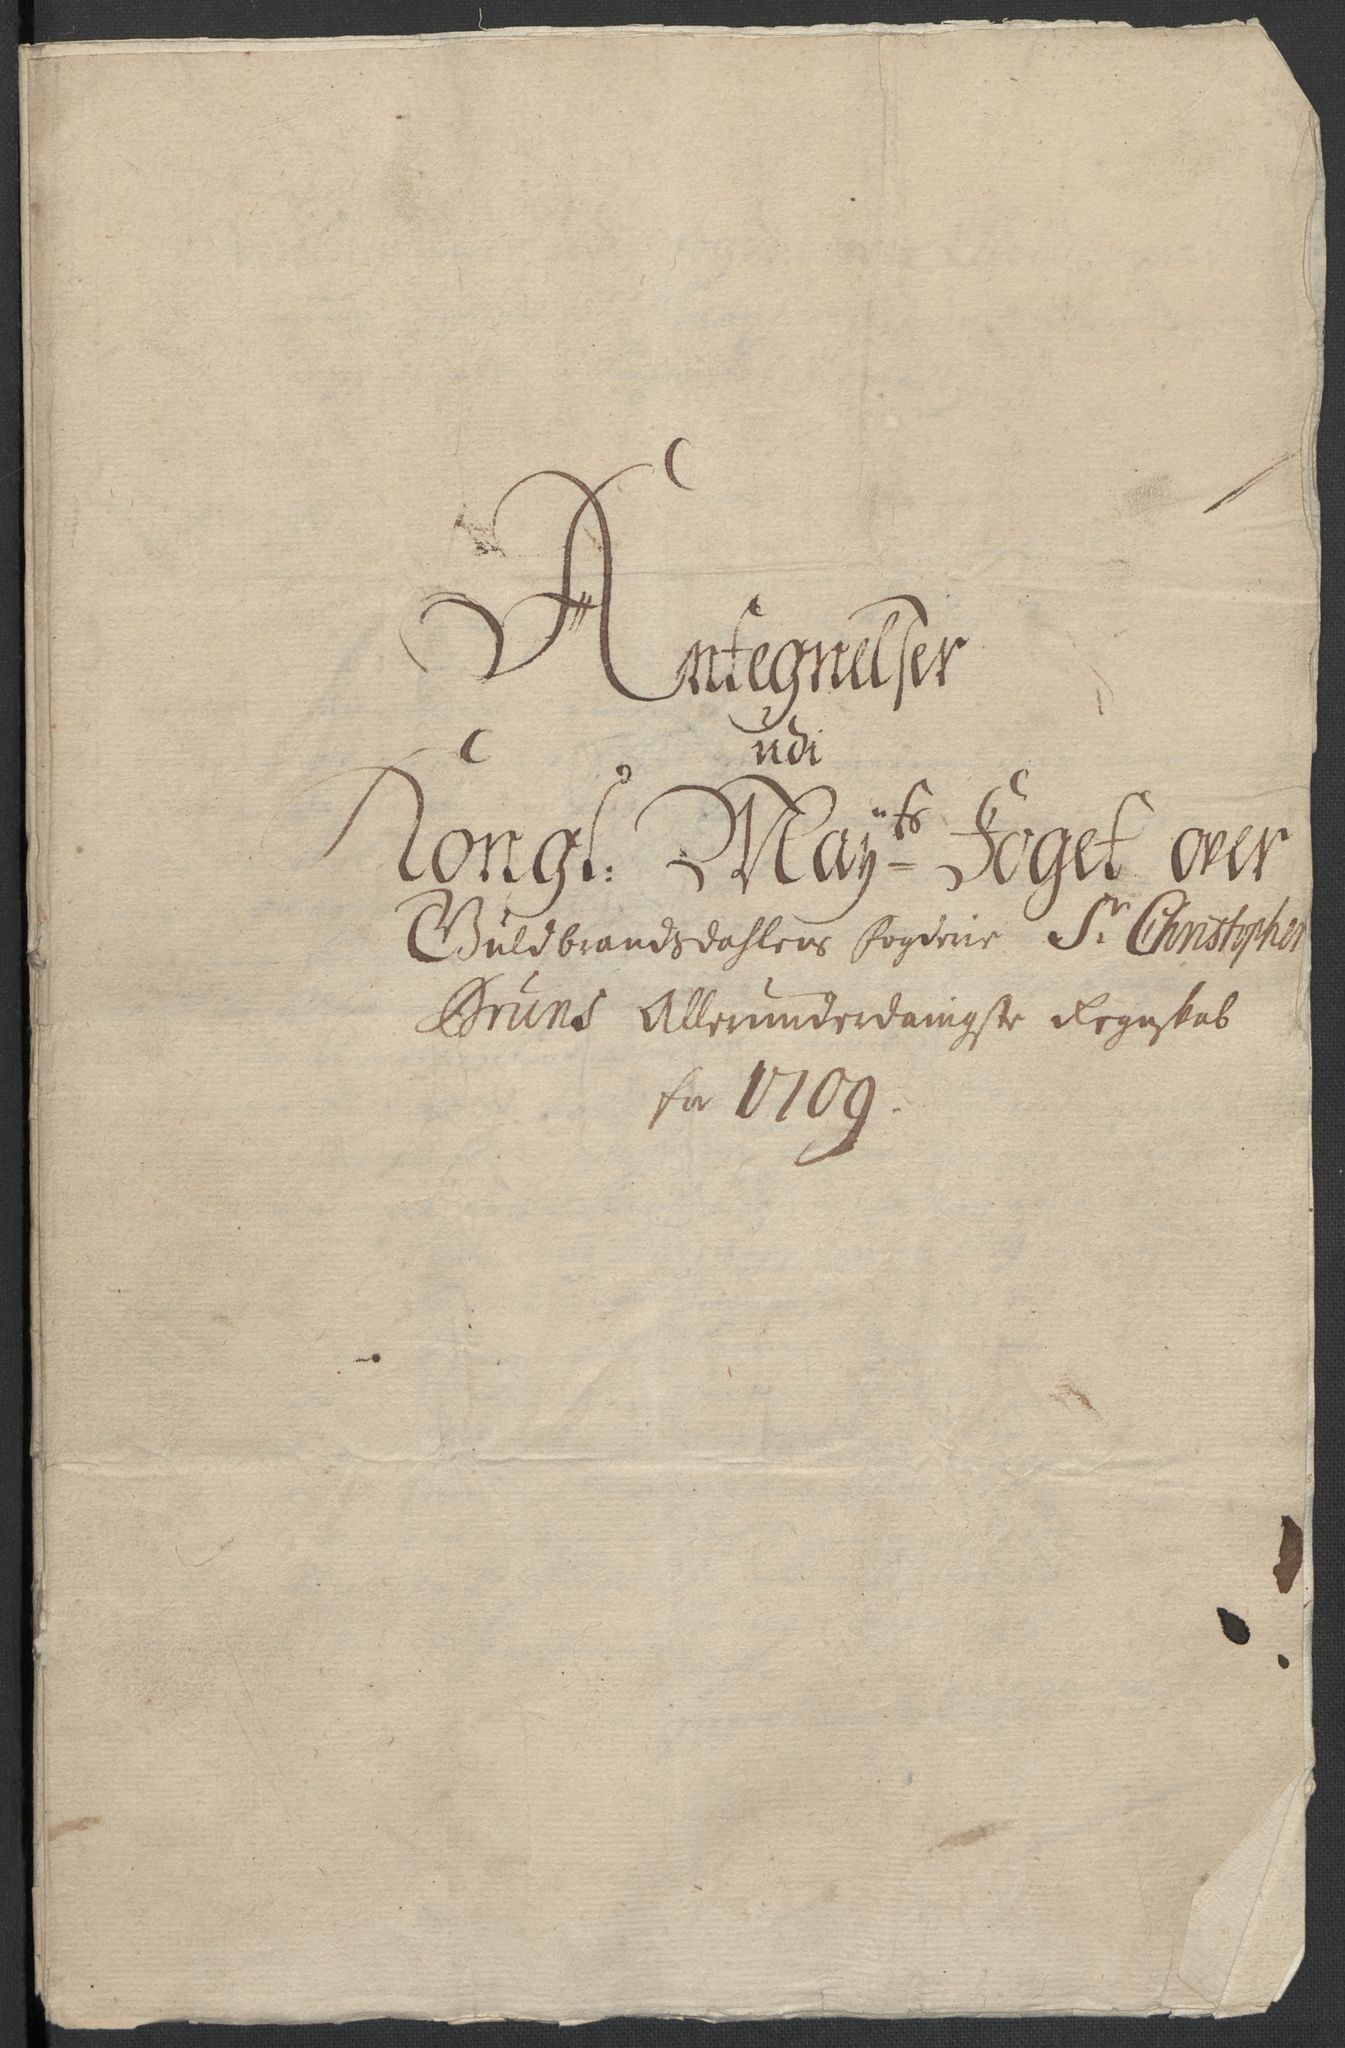 Antegnelser
udi
Kongl: May:ts Foget over
Guldbrandsdahlens fogderie Sr Christopher
Bruns Allerunderdanigste Regnskab
for 1709.